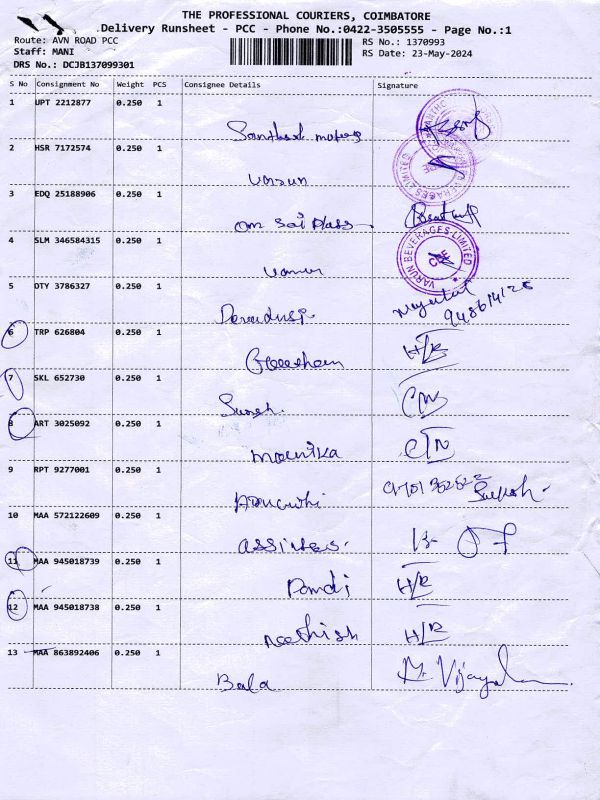 THE PROFESSIONAL COURIERS, COIMBATORE
Delivery Runsheet - PCC - Phone No.:0422-3505555 - Page No.:1
Route: AVN ROAD PCC RS No.: 1370993
Staff: MANI RS Date: 23-May-2024
DRS No.: DCJB137099301
S No Consignment No Weight PCS Consignee Details Signature
1 UPT 2212877 0.250 1
2 HSR 7172574 0.250 1
Varun
3 EDQ 25188906 0.250 1
om Sai
4 SLM 346584315 0.250 1
VARUN BEVERAGES LIMITED
5 DTY 3786327 0.250 1
6 TRP 626804 0.250 1
H/R
7 SKL 652730 0.250 1
Suresh.
8 ART 3025092 0.250 1
mounika
9 RPT 9277001 0.250 1
10 MAA 572122609 0.250 1
11 MAA 945018739 0.250 1
Pandi H/R
12 MAA 945018738 0.250 1
neethish H/R
13 MAA 863892406 0.250 1
Bala